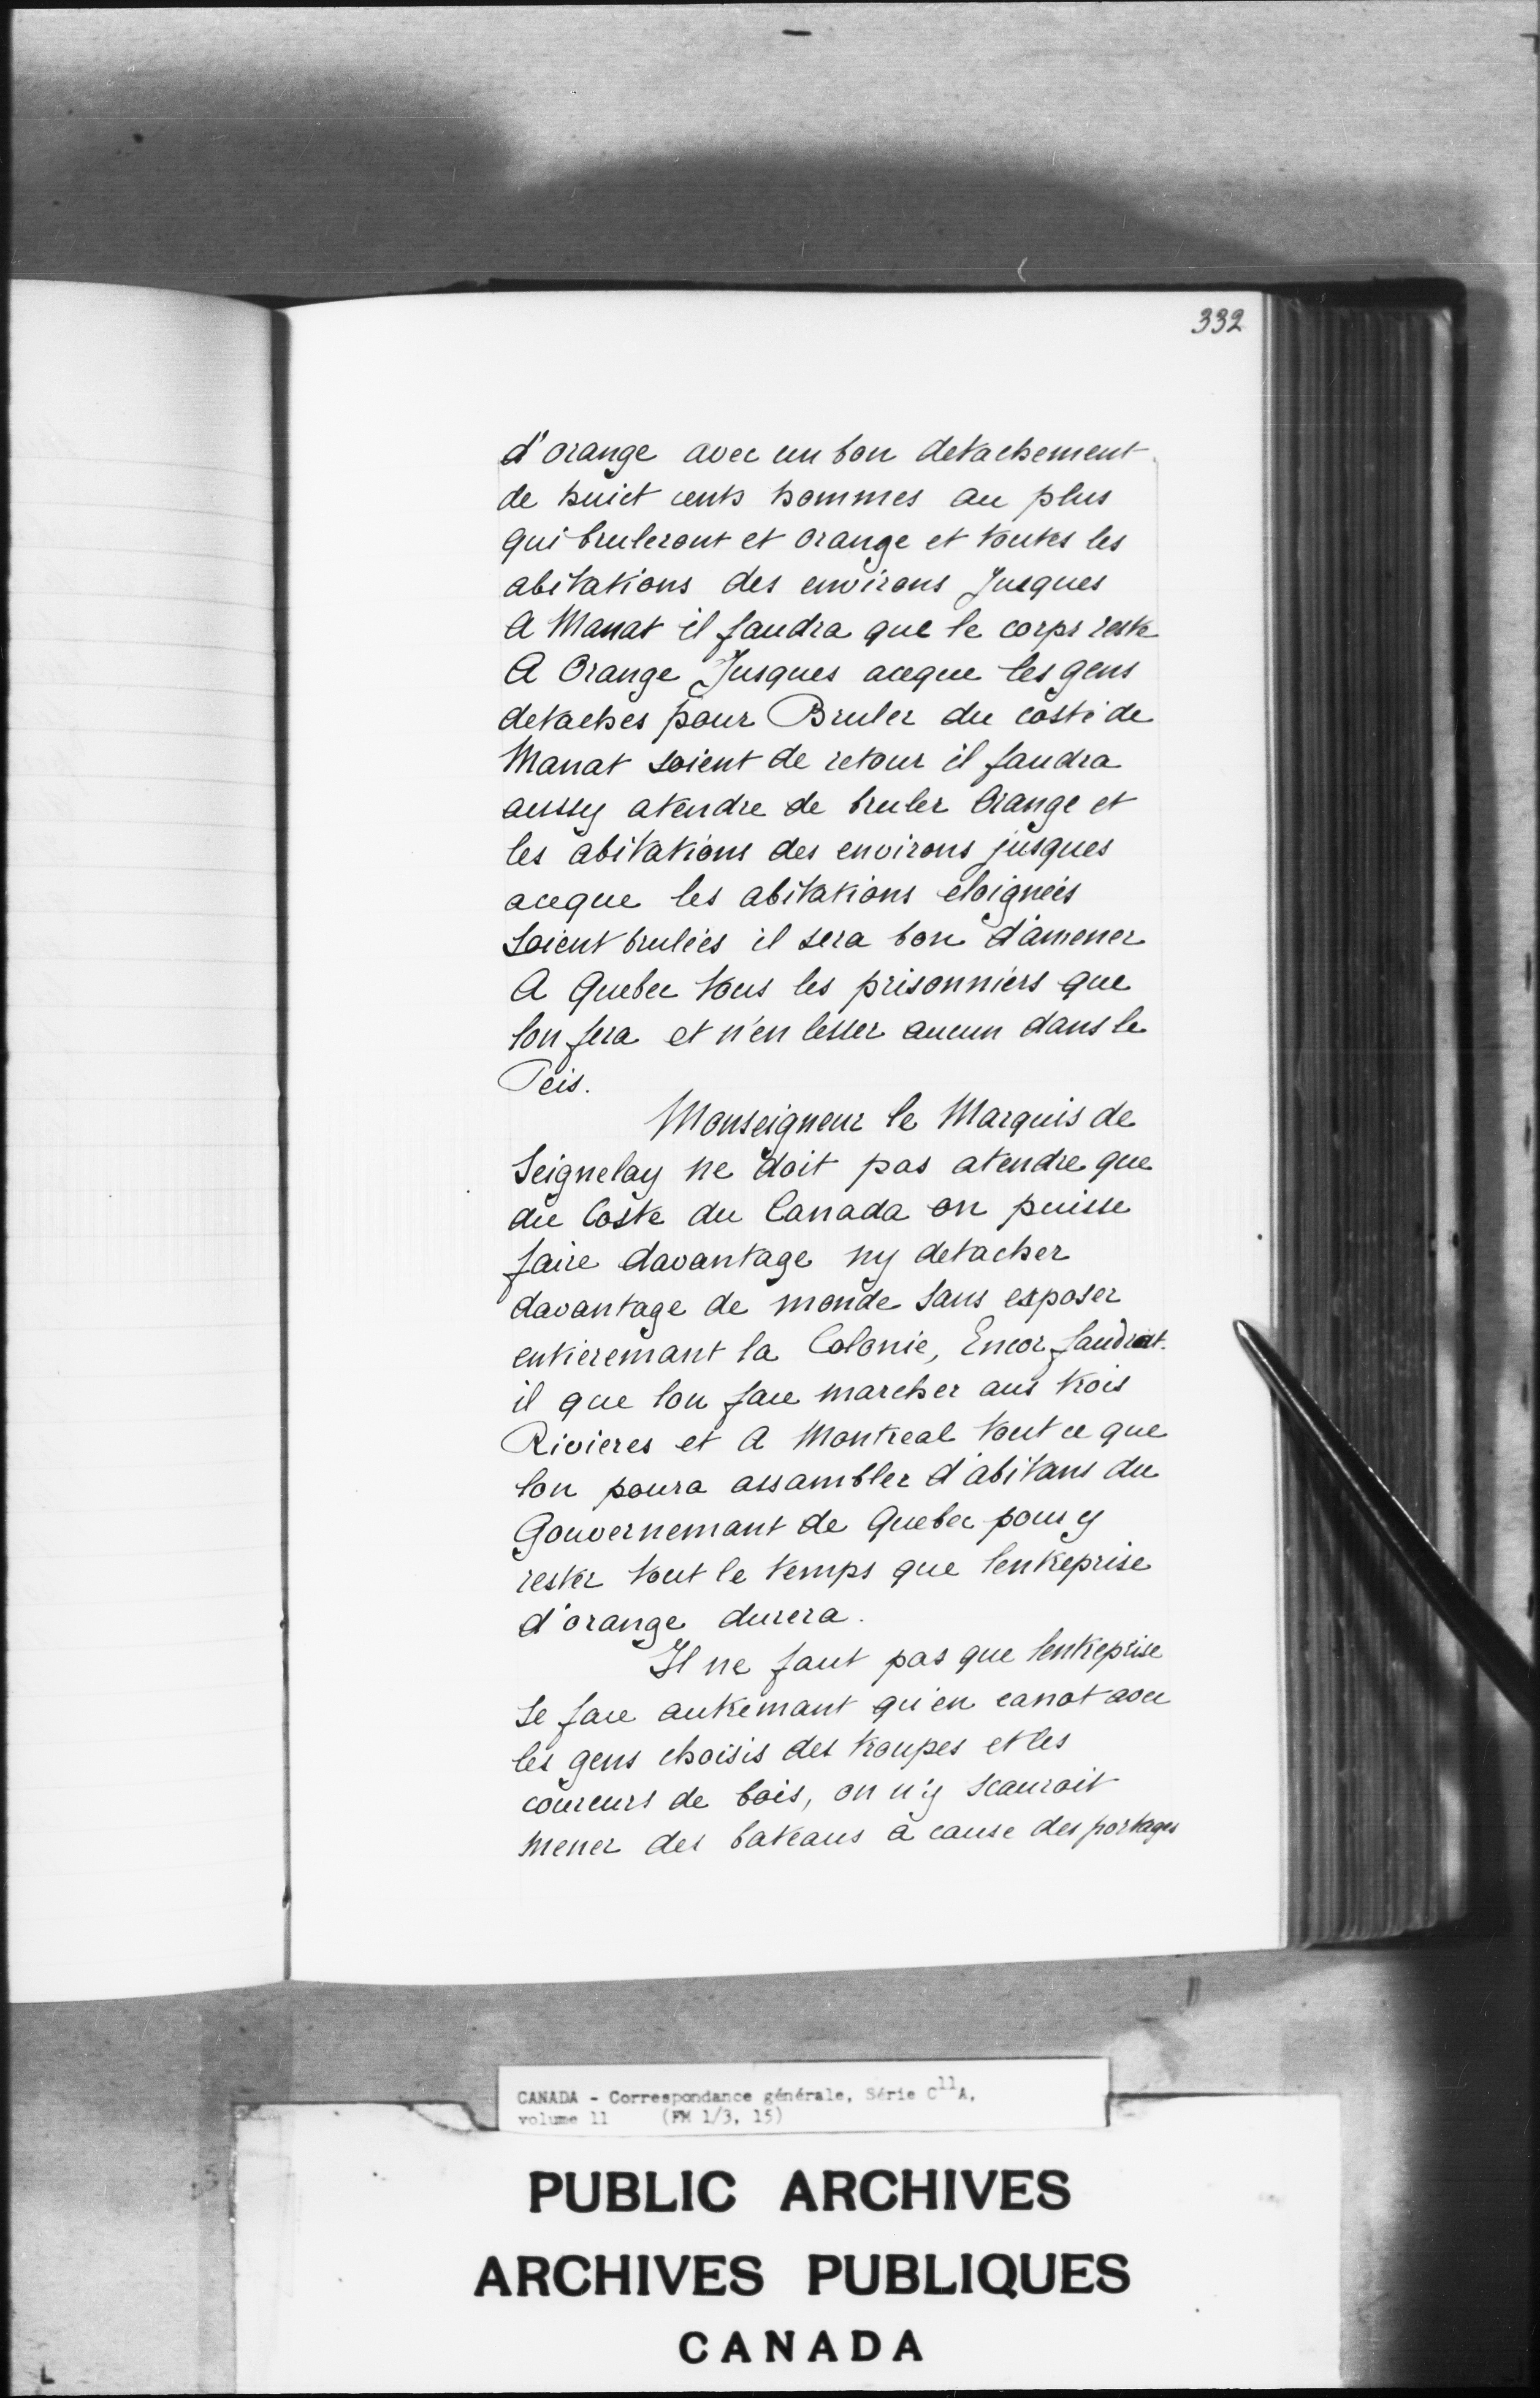 332
d'orange avec un bon detachement
de huict cents hommes au plus
qui bruleront et orange et toutes les
abitations des environs Jusques
A Manat il faudra que le corps reste
A Orange Jusques aceque les gens
detaches pour Bruler du costé de
Manat soient de retour il faudra
aussy atendre de bruler Orange et
les abitations des environs jusques
aceque les abitations eloignées
soient brulées il sera bon d'amener
A Quebec tous les prisonniers que
lon fera et n'en lesser aucun dans le
Peis.
Monseigneur le Marquis de
Seignelay ne doit pas atendre que
du Coste du Canada on puisse
faire davantage ny detacher
davantage de monde sans exposer
entieremant la Colonie, Encor faudrat.
il que lon face marcher aus trois
Rivieres et A Montreal tout ce que
lon poura assambler d'abitans du
Gouvernemant de Quebec pour y
rester tout le temps que lentreprise
d'orange durera.
Il ne faut pas que lentreprise
se face autremant qu'en canot avec
les gens choisis des troupes et les
coureurs de bois, on n'y scauroit
mener des bateaus à cause des portages
CANADA - Correspondance générale, Série C11A,
volume 11 (FM 1/3, 15)
PUBLIC ARCHIVES
ARCHIVES PUBLIQUES
CANADA
L